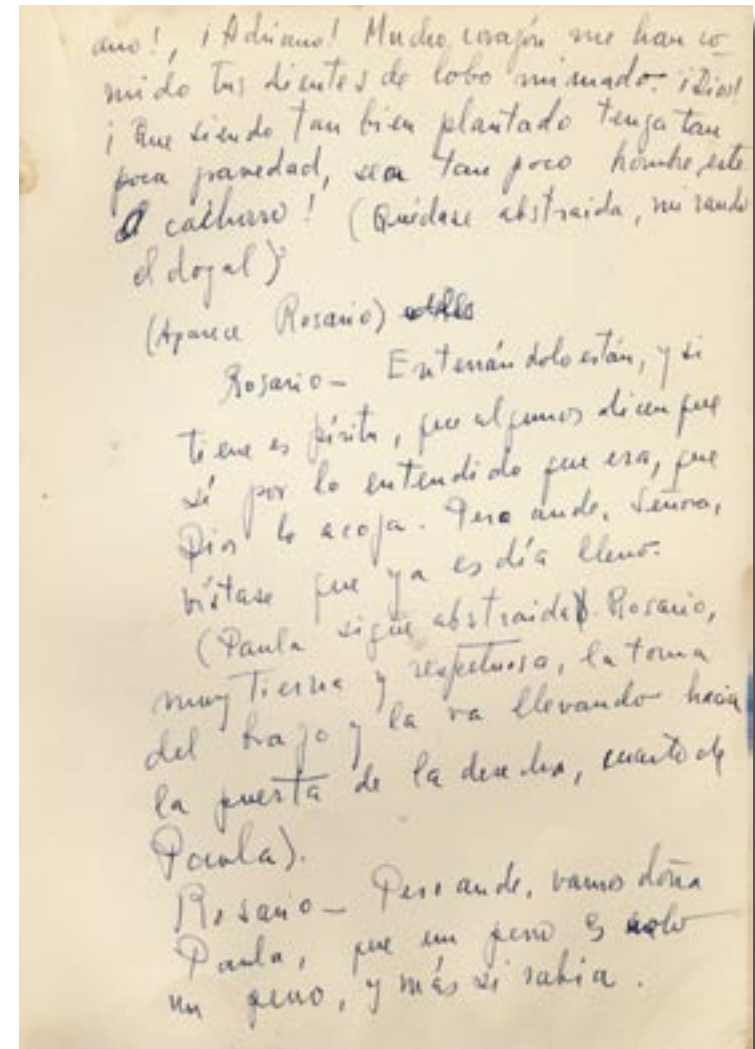 ano!, ¡Adriano! Mucho corazón me han co-
mido tus dientes de lobo mimado. ¡Dios!
¡Que siendo tan bien plantado tenga tan
poca gravedad, sea tan poco hombre, este
cachorro! (Quédase abstraida, mirando
el dogal)
(Aparece Rosario)
Rosario- Enterrándolo están, y si
tiene espíritu, que algunos dicen que
sí por lo entendido que era, que
Dios lo acoja. Pero ande, Señora,
vístase que ya es día lleno.
(Paula sigue abstraida). Rosario,
muy tierna y respetuosa, la toma
del brazo y la va llevando hacia
la puerta de la derecha, cuarto de
Paula).
Rosario- Pero ande, vamos doña
Paula, que un perro es solo
un perro, y más si rabia.